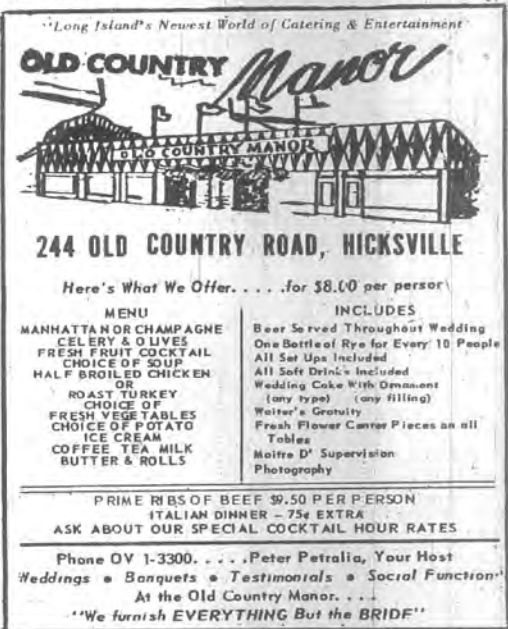 "Long Island's Newest World of Catering & Entertainment
OLD COUNTRY Manor
OLD COUNTRY MANOR
244 OLD COUNTRY ROAD, HICKSVILLE
Here's What We Offer. . . . .for $8.00 per person
MENU
MANHATTAN OR CHAMPAGNE
CELERY & OLIVES
FRESH FRUIT COCKTAIL
CHOICE OF SOUP
HALF BROILED CHICKEN
OR
ROAST TURKEY
CHOICE OF
FRESH VEGETABLES
CHOICE OF POTATO
ICE CREAM
COFFEE TEA MILK
BUTTER & ROLLS
INCLUDES
Beer Served Throughout Wedding
One Bottle of Rye for Every 10 People
All Set Ups Included
All Soft Drinks Included
Wedding Cake With Ornament
(any type) (any filling)
Waiter's Gratuity
Fresh Flower Center Pieces on all
Tables
Maitre D' Supervision
Photography
PRIME RIBS OF BEEF $9.50 PER PERSON
ITALIAN DINNER - 75¢ EXTRA
ASK ABOUT OUR SPECIAL COCKTAIL HOUR RATES
Phone OV 1-3300. . . . .Peter Petralia, Your Host
Weddings • Banquets • Testimonials • Social Function
At the Old Country Manor. . . .
"We furnish EVERYTHING But the BRIDE"